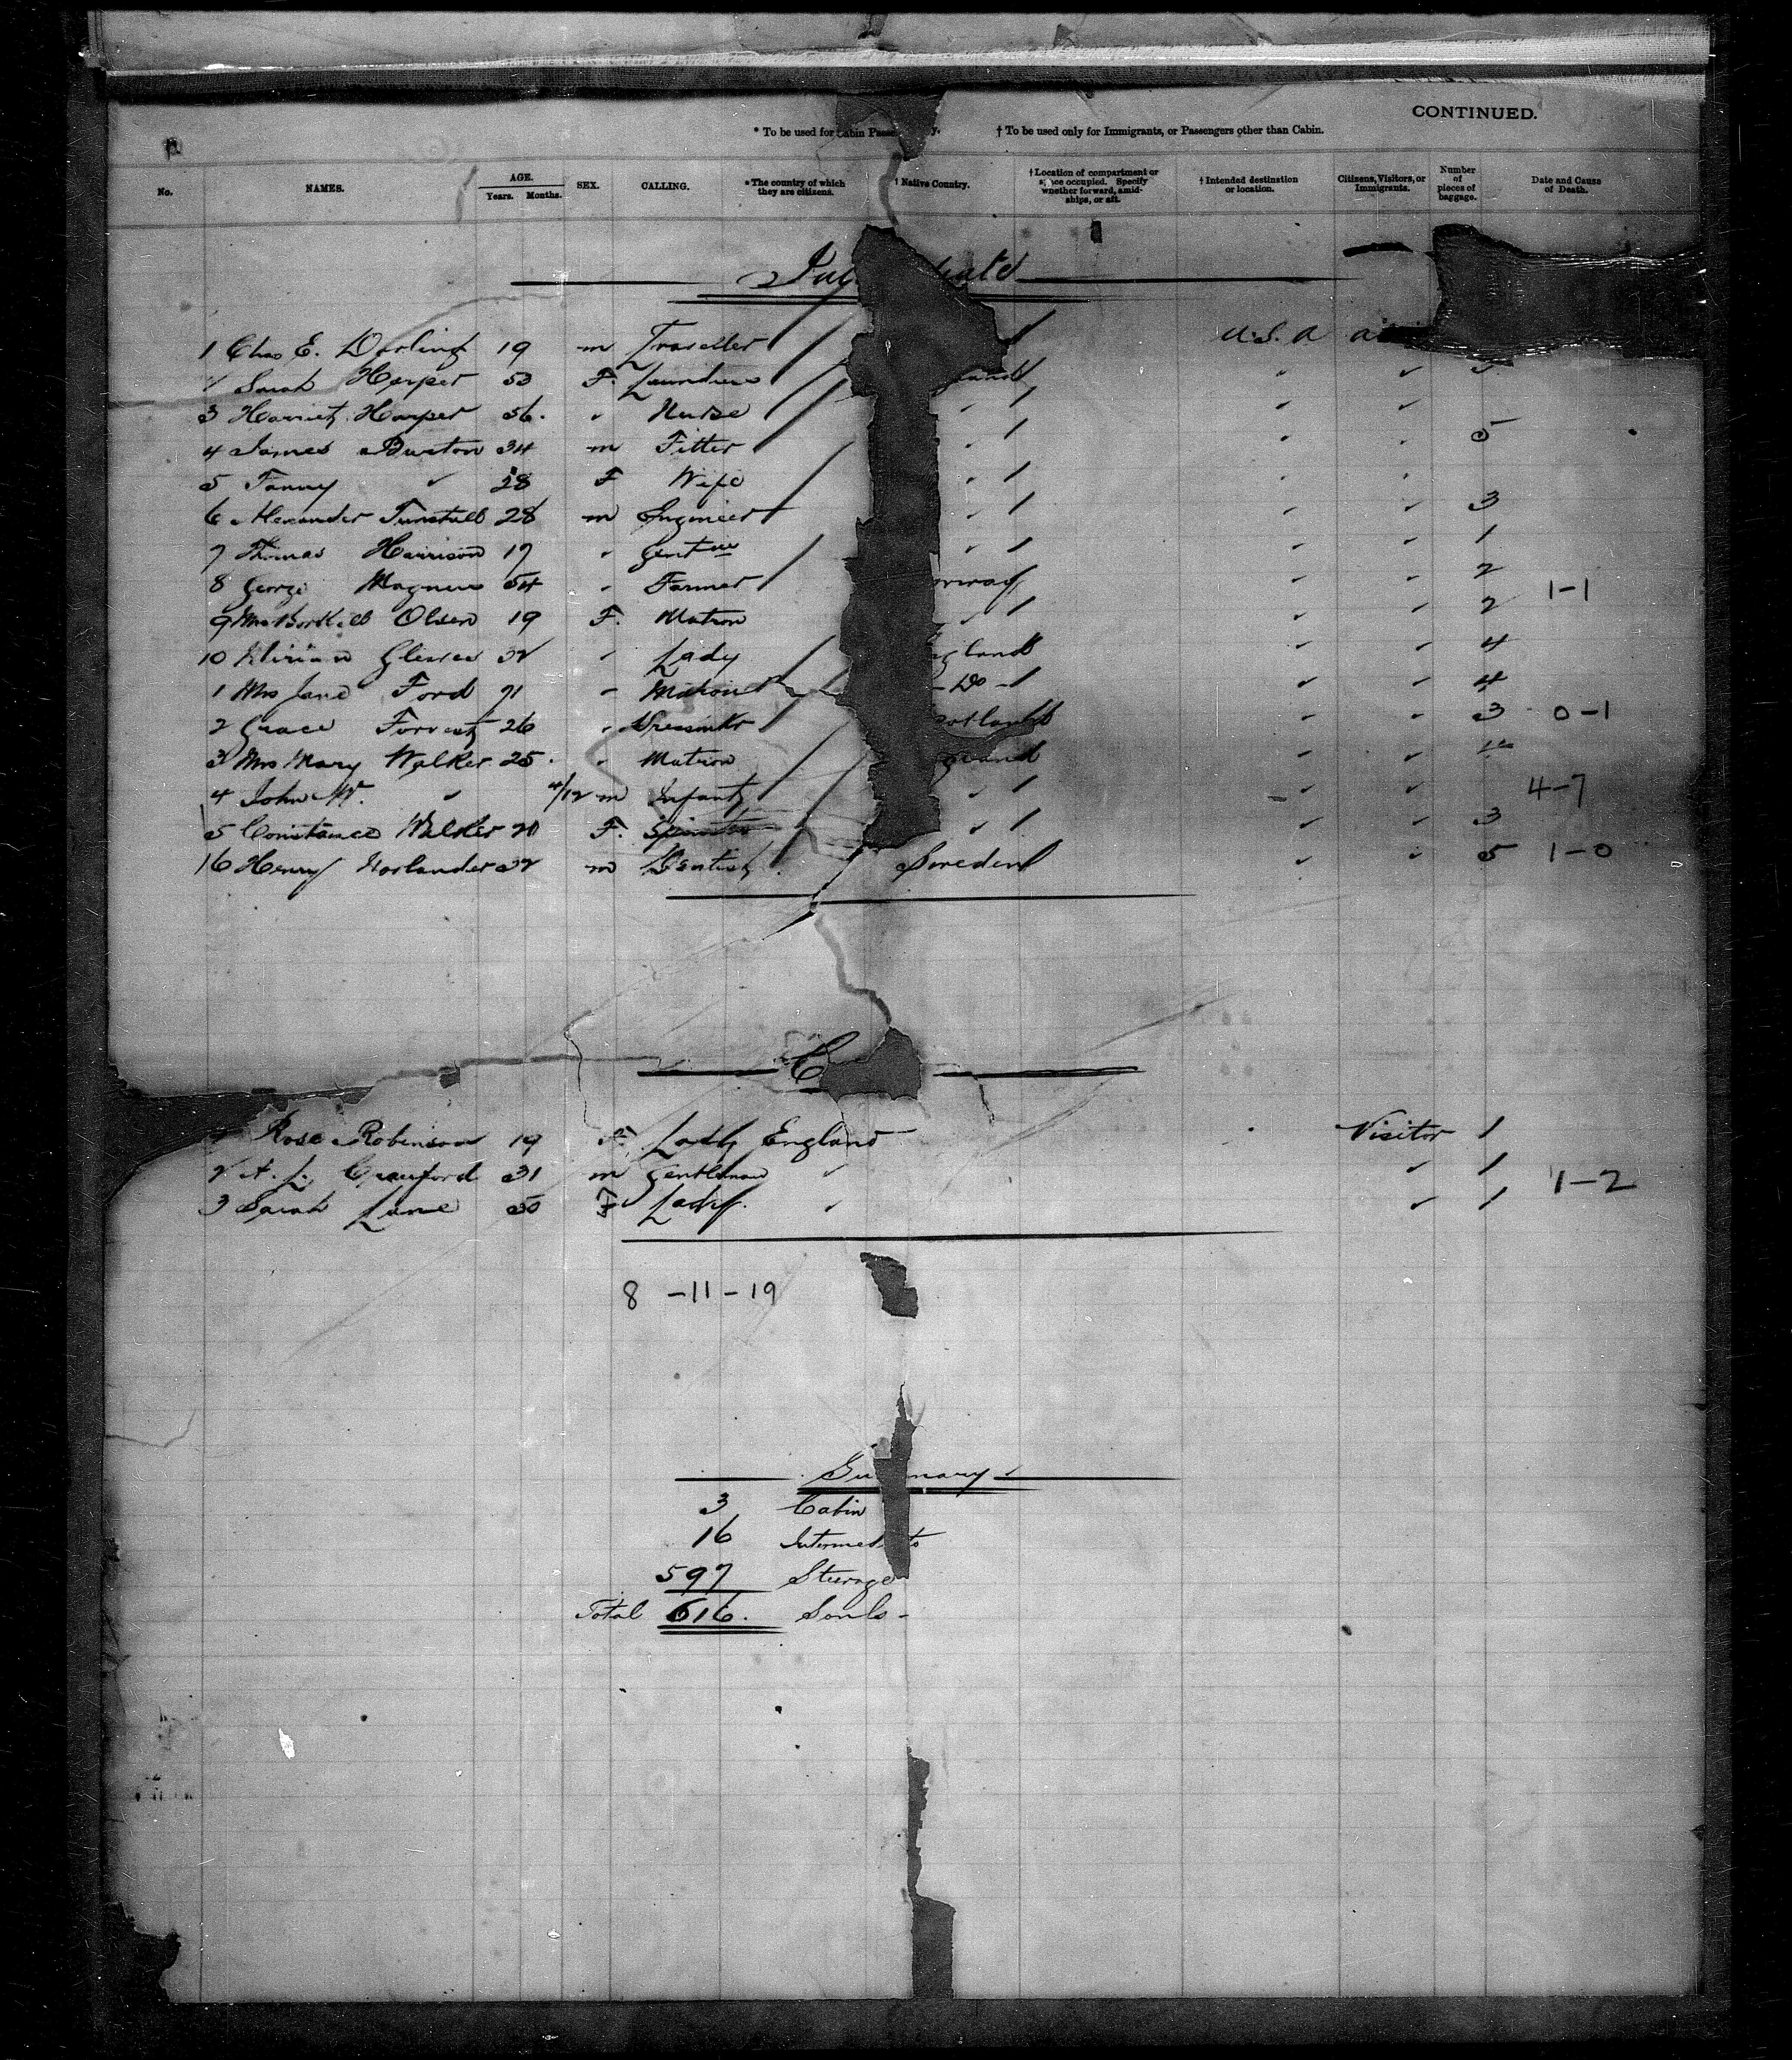 CONTINUED.
* To be used for Cabin Passe y. † To be used only for Immigrants, or Passengers other than Cabin.
No. NAMES. AGE. Years. Months. SEX. CALLING. * The country of which they are citizens. † Native Country. † Location of compartment or space occupied. Specify whether forward, amidships, or aft. † Intended destination or location. Citizens, Visitors, or Immigrants. Number of pieces of baggage. Date and Cause of Death.
1 Chas E. Darling 19 m Traveller U.S.A
Sarah Harper F. Laundress
3 Harriet Harper 56 " Nurse "
4 James Burton 34 m Fitter " 5
5 Fanny " 28 F Wife "
6 Alexander Tunstall 28 m Engineer " 3
7 Thomas Harrison 17 " Gent " 1
8 George Magnus 54 " Farmer orway 2 1-1
9 Mrs Olsen 19 F. Matron " 2
10 " Lady gland 4
1 Mrs Jane Ford " Matron - Do - 4
2 Grace Forrest 26 " Dressmkr otland 3 0-1
3 Mrs Mary Walker 25 " Matron gland
4 John W. " m Infant " 4-7
5 Constance Walker F. Spinster " 3
16 Henry m Dentist Sweden " " 5 1-0
C
Rose Robinson 19 F. Lady England Visitor 1
2 A. L. Crawford 31 m Gentleman " " 1 1-2
3 Sarah Lane F Lady " " 1
8 -11-19
Su mary
3 Cabin
16 Intermed
597 Steerage
Total 616. Souls -